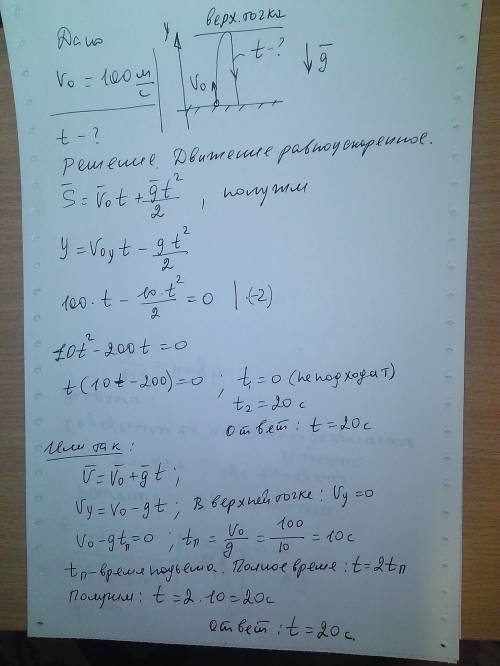 Дано
верх. точка
y
t - ?
V₀ = 100 м/с
V₀
g̅
t - ?
Решение. Движение равноускоренное.
S̅ = V̅₀t + g̅t²/2, получим
y = V₀y t - gt²/2
100·t - 10·t²/2 = 0 |·(-2)
10t² - 200t = 0
t(10t - 200) = 0 ; t₁ = 0 (не подходит)
t₂ = 20 с
Ответ: t = 20 с
Или так:
V̅ = V̅₀ + g̅t ;
Vy = V₀ - gt ; В верхней точке: Vy = 0
V₀ - gtп = 0 ; tп = V₀/g = 100/10 = 10 с
tп - время подъема. Полное время: t = 2tп
Получим: t = 2·10 = 20 с
Ответ: t = 20 с.